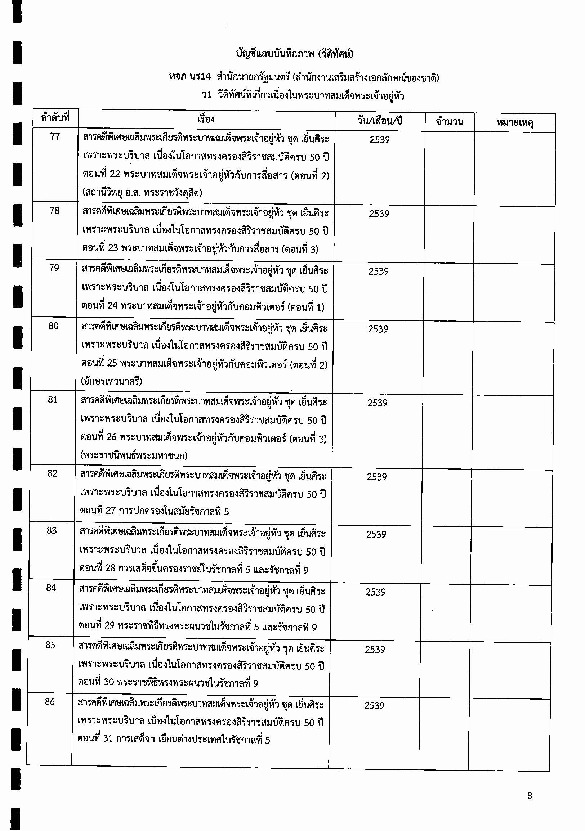 บัญชีแถบบันทึกภาพ (วีดิทัศน์)
หจภ นร14 สำนักนายกรัฐมนตรี (สำนักงานเสริมสร้างเอกลักษณ์ของชาติ)
ว1 วีดิทัศน์ที่เกี่ยวเนื่องในพระบาทสมเด็จพระเจ้าอยู่หัว
ลำดับที่ เรื่อง วัน/เดือน/ปี จำนวน หมายเหตุ
77 สารคดีพิเศษเฉลิมพระเกียรติพระบาทสมเด็จพระเจ้าอยู่หัว ชุด เย็นศิระ 2539
เพราะพระบริบาล เนื่องในโอกาสทรงครองสิริราชสมบัติครบ 50 ปี
ตอนที่ 22 พระบาทสมเด็จพระเจ้าอยู่หัวกับการสื่อสาร (ตอนที่ 2)
(สถานีวิทยุ อ.ส. พระราชวังดุสิต)
78 สารคดีพิเศษเฉลิมพระเกียรติพระบาทสมเด็จพระเจ้าอยู่หัว ชุด เย็นศิระ 2539
เพราะพระบริบาล เนื่องในโอกาสทรงครองสิริราชสมบัติครบ 50 ปี
ตอนที่ 23 พระบาทสมเด็จพระเจ้าอยู่หัวกับการสื่อสาร (ตอนที่ 3)
79 สารคดีพิเศษเฉลิมพระเกียรติพระบาทสมเด็จพระเจ้าอยู่หัว ชุด เย็นศิระ 2539
เพราะพระบริบาล เนื่องในโอกาสทรงครองสิริราชสมบัติครบ 50 ปี
ตอนที่ 24 พระบาทสมเด็จพระเจ้าอยู่หัวกับคอมพิวเตอร์ (ตอนที่ 1)
80 สารคดีพิเศษเฉลิมพระเกียรติพระบาทสมเด็จพระเจ้าอยู่หัว ชุด เย็นศิระ 2539
เพราะพระบริบาล เนื่องในโอกาสทรงครองสิริราชสมบัติครบ 50 ปี
ตอนที่ 25 พระบาทสมเด็จพระเจ้าอยู่หัวกับคอมพิวเตอร์ (ตอนที่ 2)
(อักษรเทวนาครี)
81 สารคดีพิเศษเฉลิมพระเกียรติพระบาทสมเด็จพระเจ้าอยู่หัว ชุด เย็นศิระ 2539
เพราะพระบริบาล เนื่องในโอกาสทรงครองสิริราชสมบัติครบ 50 ปี
ตอนที่ 26 พระบาทสมเด็จพระเจ้าอยู่หัวกับคอมพิวเตอร์ (ตอนที่ 3)
(พระราชนิพนธ์พระมหาชนก)
82 สารคดีพิเศษเฉลิมพระเกียรติพระบาทสมเด็จพระเจ้าอยู่หัว ชุด เย็นศิระ 2539
เพราะพระบริบาล เนื่องในโอกาสทรงครองสิริราชสมบัติครบ 50 ปี
ตอนที่ 27 การปกครองในสมัยรัชกาลที่ 5
83 สารคดีพิเศษเฉลิมพระเกียรติพระบาทสมเด็จพระเจ้าอยู่หัว ชุด เย็นศิระ 2539
เพราะพระบริบาล เนื่องในโอกาสทรงครองสิริราชสมบัติครบ 50 ปี
ตอนที่ 28 การเสด็จขึ้นครองราชย์ในรัชกาลที่ 5 และรัชกาลที่ 9
84 สารคดีพิเศษเฉลิมพระเกียรติพระบาทสมเด็จพระเจ้าอยู่หัว ชุด เย็นศิระ 2539
เพราะพระบริบาล เนื่องในโอกาสทรงครองสิริราชสมบัติครบ 50 ปี
ตอนที่ 29 พระราชพิธีทรงพระผนวชในรัชกาลที่ 5 และรัชกาลที่ 9
85 สารคดีพิเศษเฉลิมพระเกียรติพระบาทสมเด็จพระเจ้าอยู่หัว ชุด เย็นศิระ 2539
เพราะพระบริบาล เนื่องในโอกาสทรงครองสิริราชสมบัติครบ 50 ปี
ตอนที่ 30 พระราชพิธีทรงพระผนวชในรัชกาลที่ 9
86 สารคดีพิเศษเฉลิมพระเกียรติพระบาทสมเด็จพระเจ้าอยู่หัว ชุด เย็นศิระ 2539
เพราะพระบริบาล เนื่องในโอกาสทรงครองสิริราชสมบัติครบ 50 ปี
ตอนที่ 31 การเสด็จฯ เยือนต่างประเทศในรัชกาลที่ 5
8